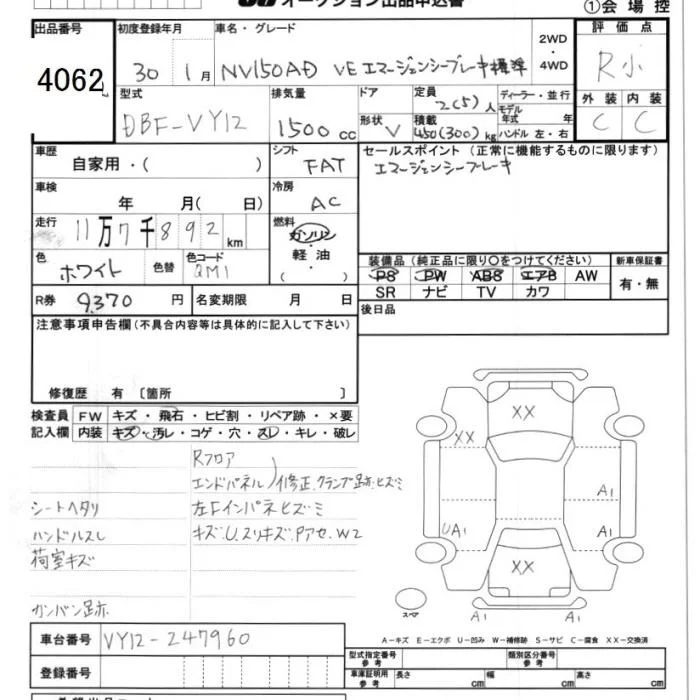 オークション出品申込書
①会場控
出品番号
4062
初度登録年月
30 1月
車名・グレード
NV150AD VE エマージェンシーブレーキ標準
2WD
・
4WD
評価点
R小
外装 内装
C C
型式
DBF-VY12
排気量
1500 cc
ドア
形状 V
定員
2(5)人
積載
450(300)kg
ディーラー・並行
モデル
年式 年
ハンドル 左・右
車歴
自家用・( )
シフト
FAT
車検
年 月( 日)
冷房
AC
走行
11万7千892km
燃料
ガソリン
・
軽油
・
( )
色
ホワイト
色替
色コード
QM1
R券 9,370 円
名変期限 月 日
セールスポイント (正常に機能するものに限ります)
エマージェンシーブレーキ
装備品(純正品に限り○をつけてください)
PS PW ABS エアB AW
SR ナビ TV カワ
新車保証書
有・無
後日品
注意事項申告欄(不具合内容等は具体的に記入して下さい)
修復歴 有 〔箇所 〕
検査員
記入欄
FW キズ・飛石・ヒビ割・リペア跡・×要
内装 キズ・汚レ・コゲ・穴・スレ・キレ・破レ
Rフロア
エンドパネル)修正、クランプ跡・ヒズミ
シートヘタリ
左Fインパネヒズミ
ハンドルスレ
キズ.U.スリキズ.Pアセ.W2
荷室キズ
カンバン跡
XX
XX
A1
UA1
A1
XX
スペア
A1
A1
A-キズ E-エクボ U-凹み W-補修跡 S-サビ C-腐食 XX-交換済
車台番号 VY12-247960
登録番号
型式指定番号
参考
類別区分番号
参考
車庫証明用
参考
長さ cm
幅 cm
高さ cm